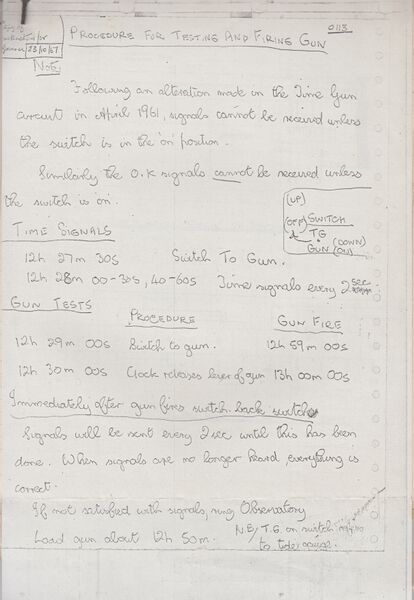 0113
23/10/67
PROCEDURE FOR TESTING AND FIRING GUN
Note
Following an alteration made in the Time Gun
circuit in April 1961, signals cannot be received unless
the switch is in the 'on' position.
Similarly the O.K signals cannot be received unless
the switch is on.
(UP)
(OFF) SWITCH
TG
(DOWN)
GUN (ON)
TIME SIGNALS
12h 27m 30s Switch To Gun.
12h 28m 00-30s, 40-60s Time signals every 2 sec
GUN TESTS
PROCEDURE GUN FIRE
12h 29m 00s Switch to gun. 12h 59m 00s
12h 30m 00s Clock releases lever of gun 13h 00m 00s
Immediately after gun fires switch back switch
Signals will be sent every 2 sec until this has been
done. When signals are no longer heard, everything is
correct.
If not satisfied with signals, ring Observatory
Load gun about 12h 50m.
N.B/ T.G. on switch
to